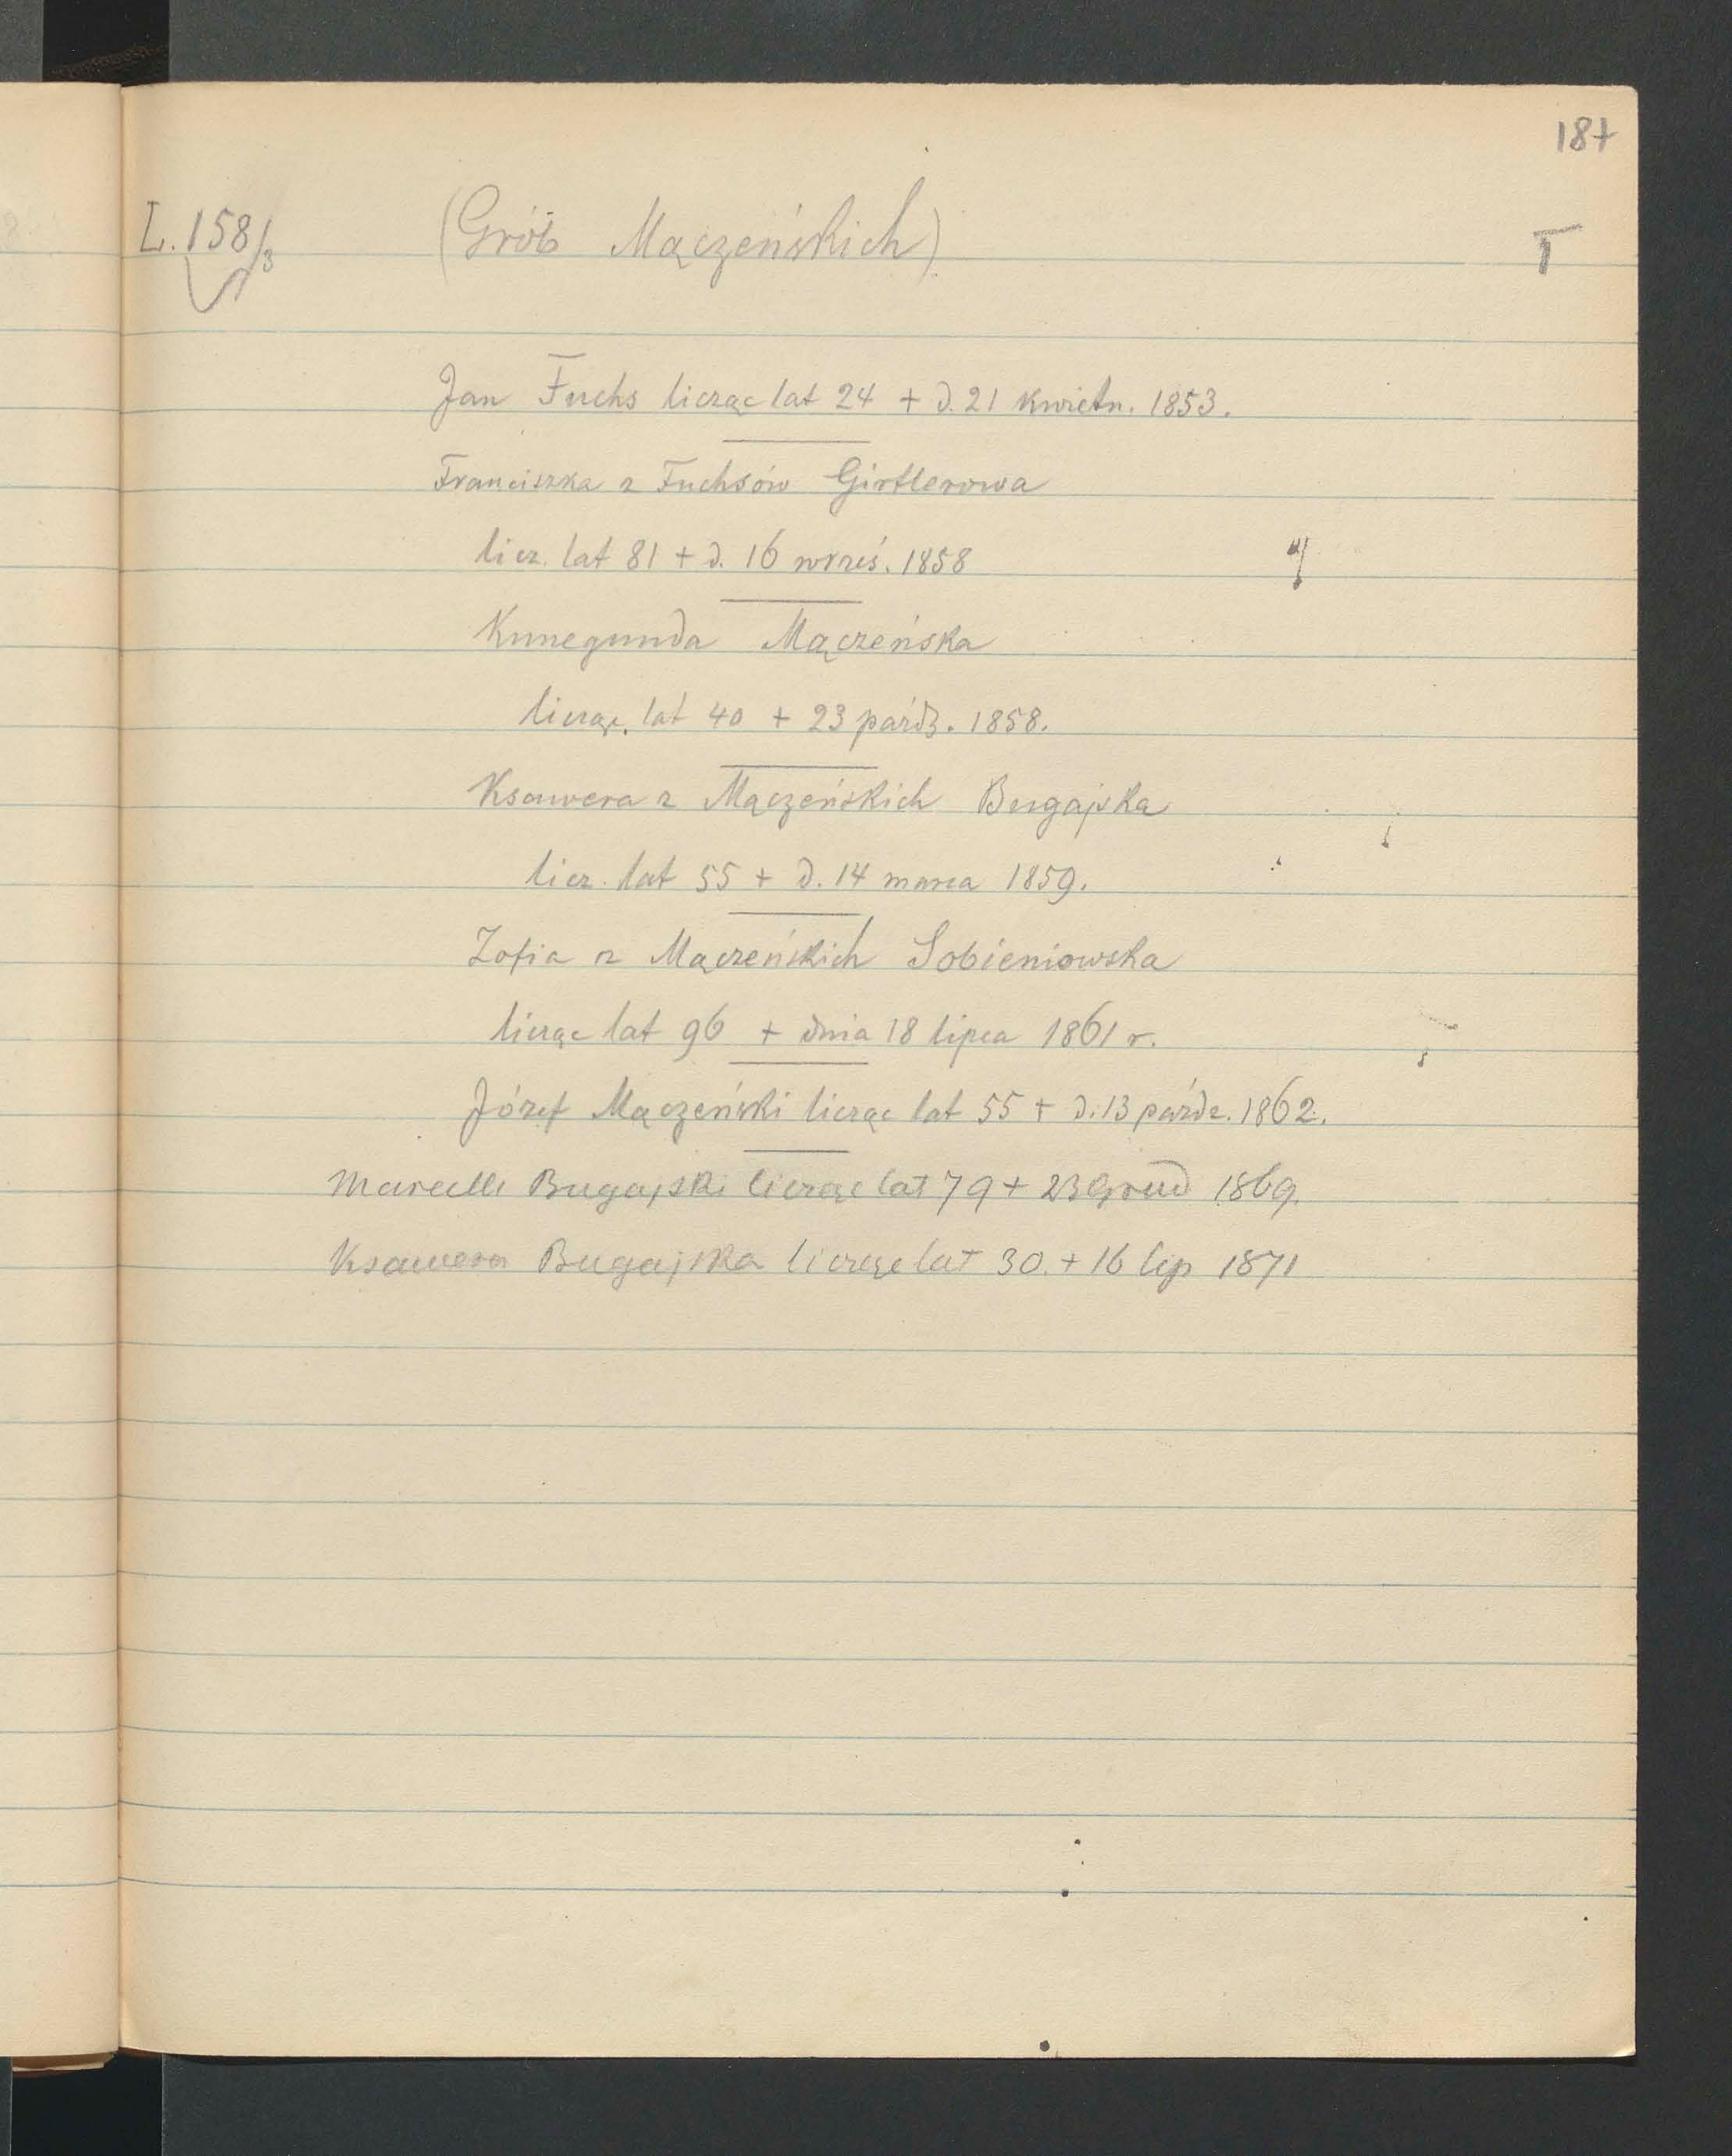 187
L. 158/3 (Grób Mączeńskich) T
Jan Fuchs licząc lat 24 + d. 21 kwietn. 1853.
Franciszka z Fuchsów Girtlerowa
licz. lat 81 + d. 16 wrześ. 1858
Kunegunda Mączeńska
licząc. lat 40 + 23 paźdz. 1858.
Ksawera z Mączeńskich Bugajska
licz. lat 55 + d. 14 marca 1859.
Zofia z Mączeńskich Sobieniowska
licząc lat 96 + dnia 18 lipca 1861 r.
Józef Mączeński licząc lat 55 + d. 13 paźdz. 1862.
Marcelli Bugajski licząc lat 79 + 23 Grud 1869.
Ksawera Bugajska licząc lat 30. + 16 lip 1871